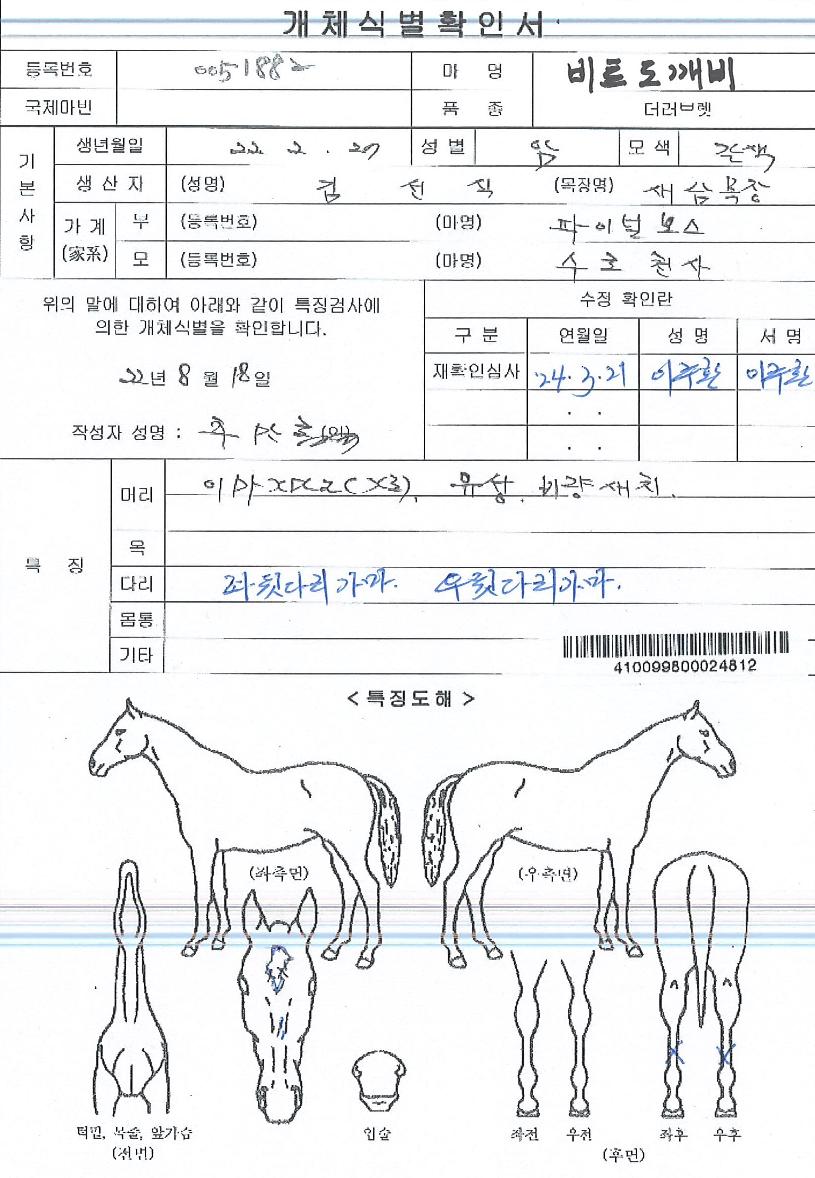 개체식별확인서
등록번호 0051882 마 명 비트도깨비
국제마빈 품 종 더러브렛
기본사항
생년월일 22. 2. 27 성별 암 모색 갈색
생산자 (성명) 김 선 직 (목장명) 새삼목장
가계 (家系) 부 (등록번호) (마명) 파이널보스
모 (등록번호) (마명) 수로천사
위의 말에 대하여 아래와 같이 특징검사에
의한 개체식별을 확인합니다.
22년 8월 18일
작성자 성명 :
수정 확인란
구 분 연월일 성 명 서 명
재확인심사 '24.3.21 이주환 이주환
. .
. .
특 징
머리 유상, 비량새치.
목
다리 좌뒷다리가마. 우뒷다리가마.
몸통
기타
410099800024812
<특징도해>
(좌측면) (우측면)
턱밑, 목줄, 앞가슴 입술 좌전 우전 좌후 우후
(전면) (후면)